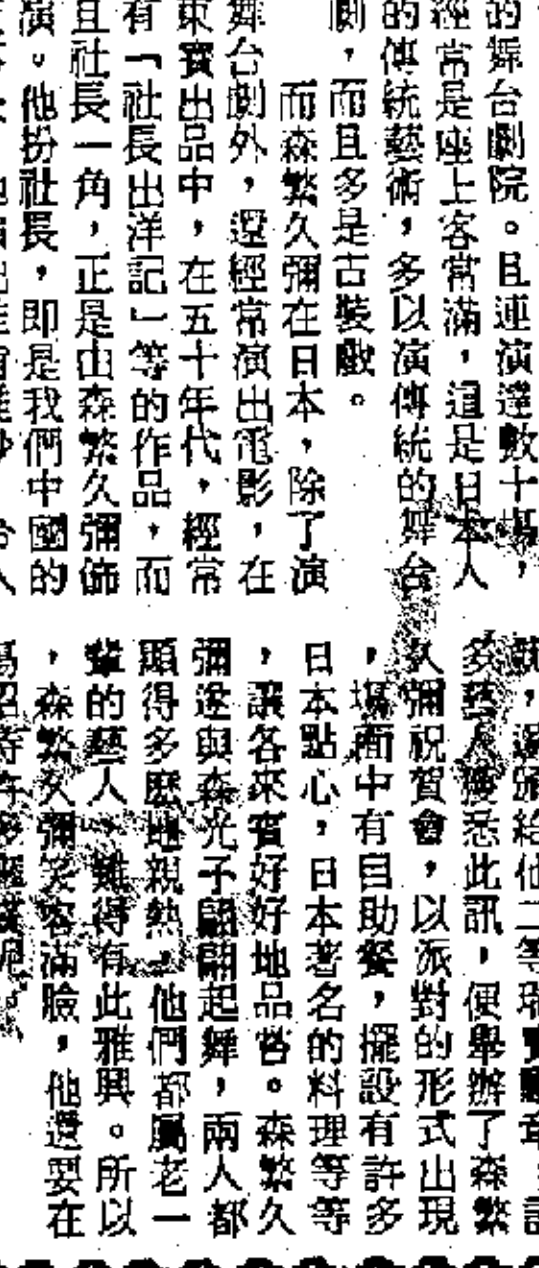 的舞台劇院。且連演達數十場，
經常是座上客常滿，這是日本人
的傳統藝術，多以演傳統的舞台
劇，而且多是古裝戲。
而森繁久彌在日本，除了演
舞台劇外，還經常演出電影，在
東寶出品中，在五十年代，經常
有「社長出洋記」等的作品，而
且社長一角，正是由森繁久彌飾
演。他扮社長，即是我們中國的
，還頒給他二等瑞寶
多藝人獲悉此訊，便舉辦了森繁
久彌祝賀會，以派對的形式出現
，場面中有自助餐，擺設有許多
日本點心，日本著名的料理等等
，讓各來賓好好地品嘗。森繁久
彌遂與森光子翩翩起舞，兩人都
顯得多麼地親熱，他們都屬老一
輩的藝人，難得有此雅興。所以
，森繁久彌笑容滿臉，他還要在